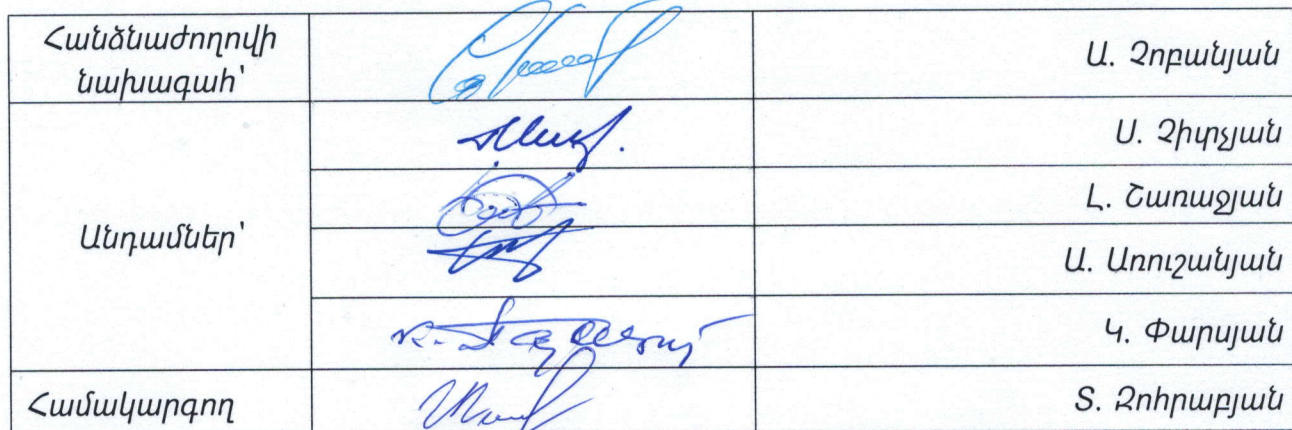 Հանձնաժողովի
նախագահ՝
Ա. Չոբանյան
Ս. Չիտչյան
Անդամներ՝
Լ. Շառաջյան
Ա. Առուշանյան
Կ. Փարսյան
Համակարգող
Տ. Զոհրաբյան